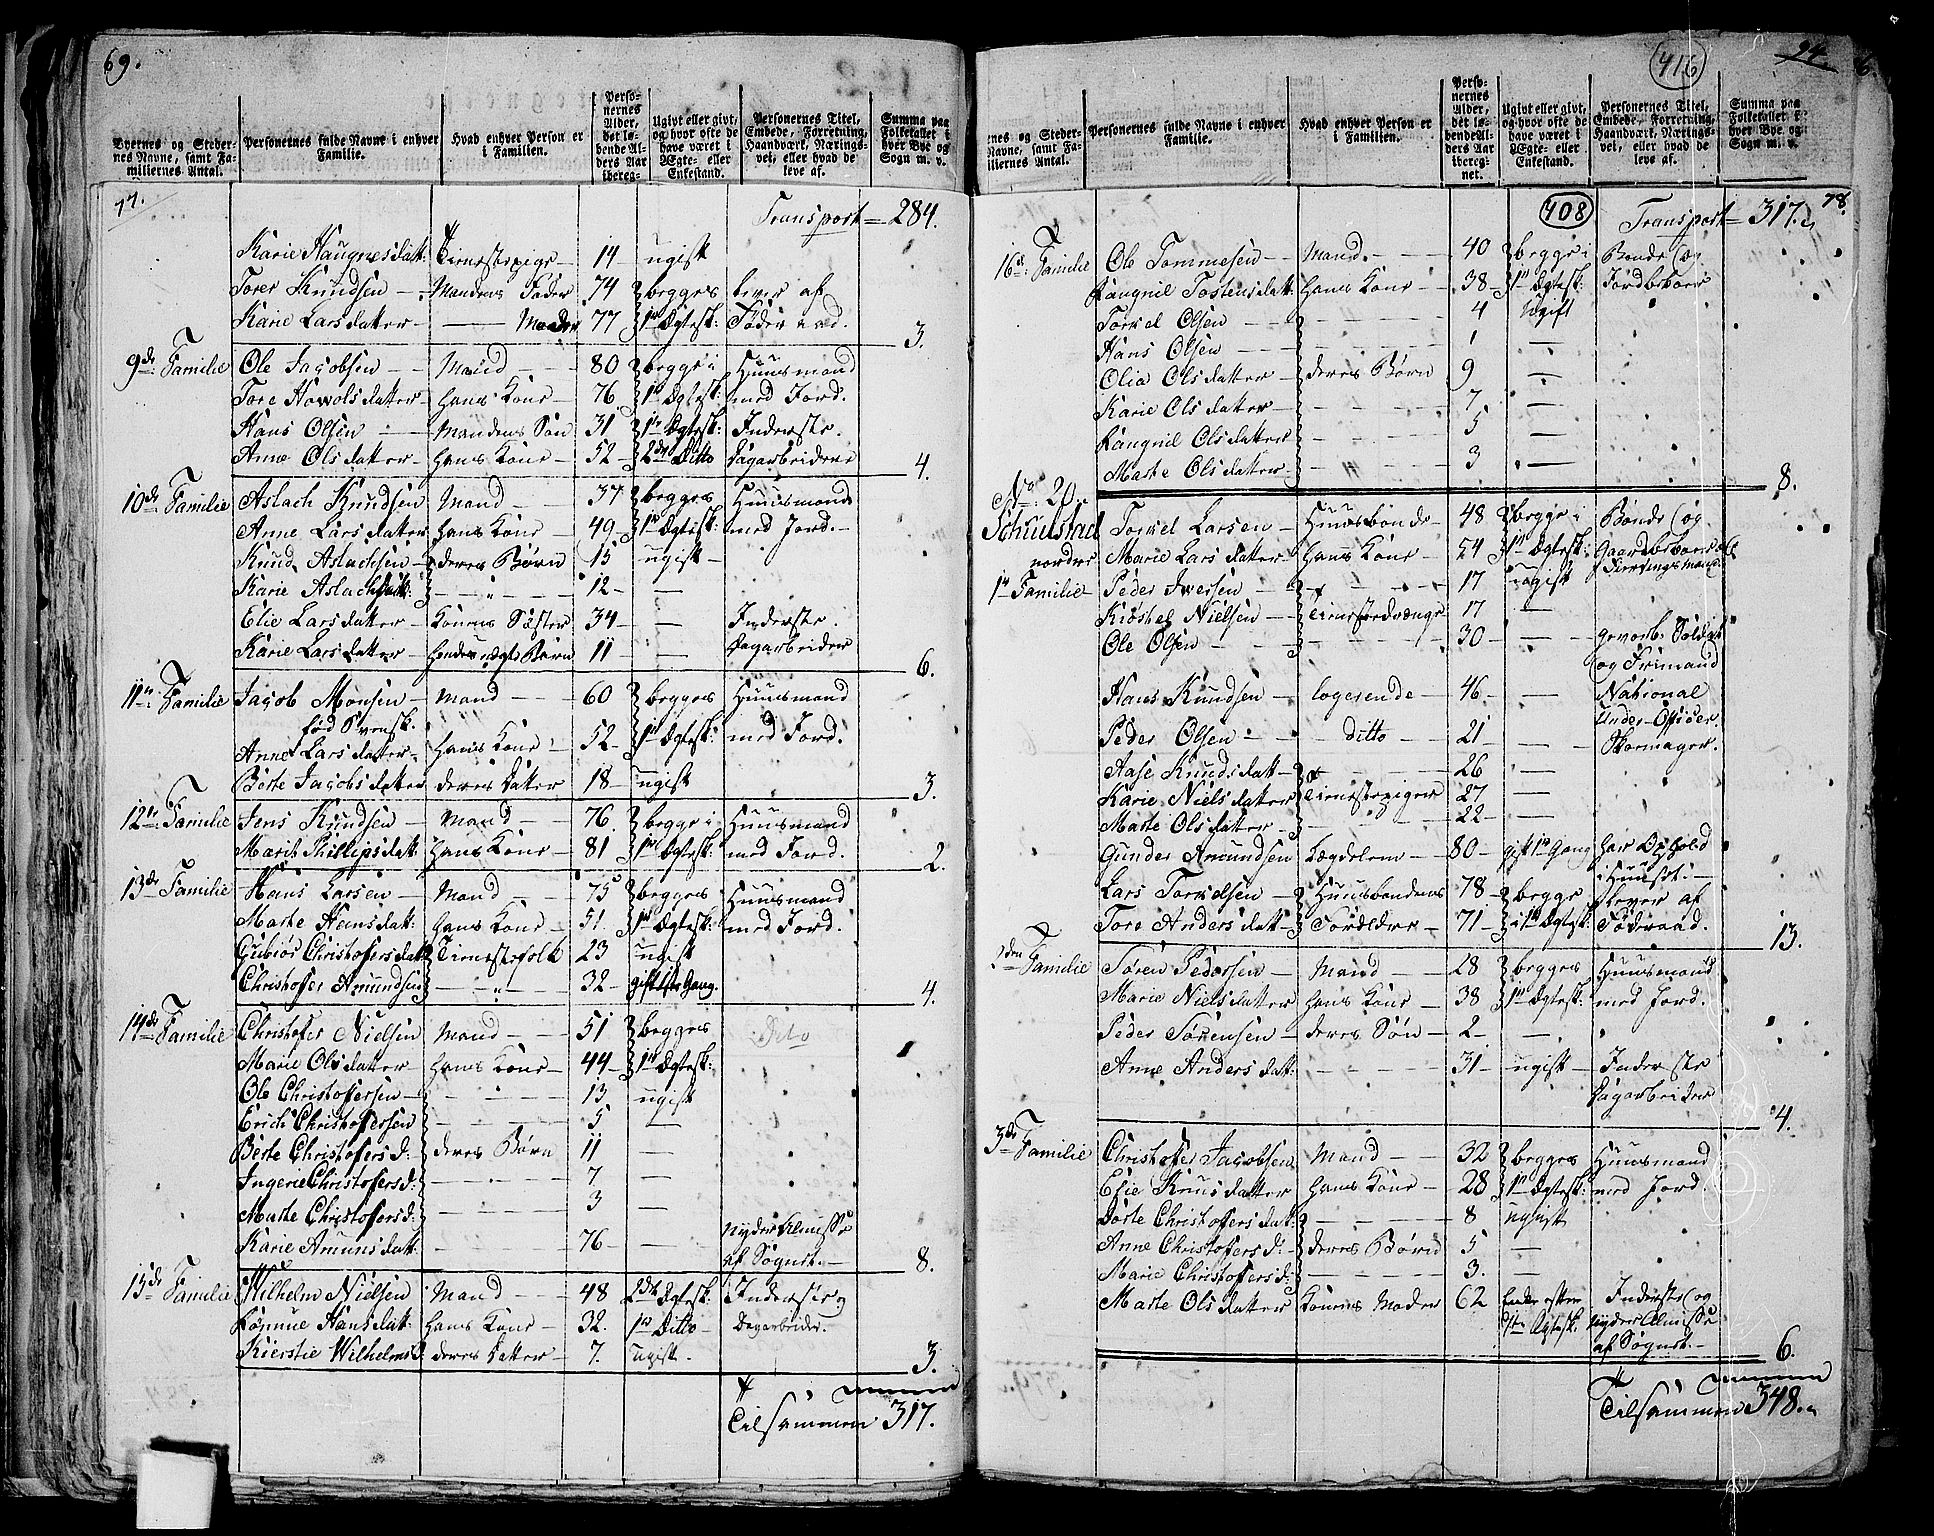 69.
Byernes og Stedernes Navne, samt Familiernes Antal.
Personernes fulde Navne i enhver Familie.
Hvad enhver Person er i Familien.
Personernes Alder, det løbende Alders Aar ibereg-
Ugivt eller givt, og hvor ofte de have været i Ægte- eller Enkestand.
Personernes Titel, Embede, Forretning, Haandværk, Næringsvei, eller hvad de leve af.
Summa paa Folketallet i hver Bye og Sogn m. v.
77.
Transport = 284.
Karie Haugnesdatt: Tienestepige 14 ugift
Torer Knudsen Mandens Fader 74 begges lever af
Karie Larsdatter Moder 77 1te Ægtesk: Føderaad. 3.
9de Familie Ole Jacobsen Mand 80 begge i Huusmand
Tore Hovolsdatter hans Kone 76 1te Ægtesk: med Jord.
Hans Olsen Mandens Søn 31 1te Ægtesk: Inderste
Anne Olsdatter hans Kone 52 2det Ditto Dagarbeidere 4.
10de Familie Aslach Knudsen Mand 37 begges Huusmand
Anne Larsdatter hans Kone 49 1te Ægtesk: med Jord.
Knud Aslachsen deres Børn 15 ugift
Karie Aslachsdatt: " 12 —
Elie Larsdatter Konens Søster 34 — Inderste
Karie Larsdatter hendes uægte Barn 11 — Dagarbeider 6.
11te Familie Jacob Monsen Mand 60 begges Huusmand
fød Svensk.
Anne Larsdatter hans Kone 52 1te Ægtesk: med Jord.
Berte Jacobsdatter deres Datter 18 ugift 3.
12te Familie Jens Knudsen Mand 76. begge i Huusmand
Marit Phillipsdatt: hans Kone 81 1te Ægtesk: med Jord. 2.
13de Familie Hans Larsen Mand 75 begges Huusmand
Marte Hansdatt: hans Kone 51. 1te Ægtesk: med Jord.
Gubiør Christofersdatt: Tienestefolk 23 ugift
Christoffer Amundsen " 32 gift 1ste Gang. 4.
14de Familie Christofer Nielsen Mand 51 begges Dito
Marie Olsdatter hans Kone 44 1te Ægtesk:
Ole Christoffersen 13 ugift
Erich Christoffersen 5 —
Berte Christofersd: deres Børn 11 —
Ingerie Christofersd: 7 —
Marte Christoffersd: 3 —
Karie Amunsdatt: 76 — nyder Almisse
af Sognet. 8.
15de Familie Wilhelm Nielsen Mand 48 2det Ægtesk: Inderste og
Rønnue Hansdatt: hans Kone 32. 1te Ditto Dagarbeider.
Kierstie Wilhelmsd: deres Datter 7. ugift. 3.
Tilsammen 317.
416
94.
nes og Stedernes Navne, samt Familiernes Antal.
Personernes fulde Navne i enhver Familie.
Hvad enhver Person er i Familien.
Personernes Alder, det løbende Alders Aar iberegnet.
Ugivt eller givt, og hvor ofte de have været i Ægte- eller Enkestand.
Personernes Titel, Embede, Forretning, Haandværk, Næringsvei, eller hvad de leve af.
Summa paa Folketallet i hver Bye og Sogn m. v.
408
Transport = 317.
78.
16de Familie Ole Tommesen Mand. 40 begge i Bonde (og
Rangnil Tostensdatt: hans Kone 38 1te Ægtesk: Jordbruger
Torkel Olsen 4 Ugift
Hans Olsen 1 —
Olia Olsdatter deres Børn 9 —
Karie Olsdatter 7 —
Rangnil Olsdatter 5 —
Marte Olsdatter 3 — 8.
No: 20.
Schiulstad nordre
1te Familie
Torkel Larsen Huusbonde 48 begge i Bonde (og
Marie Larsdatter hans Kone 54 1te Ægtesk: Gaardbruger
Peder Iversen 17 ugift
Kiøstel Nielsen Tienestedrenge 17 —
Ole Olsen 30 — gevorb: Soldat
og Frimand
Hans Knudsen logerende 46 — National
Under-Officer
Peder Olsen ditto 21 — Skomager.
Aase Knudsdatt 26 —
Karie Nielsdatter Tienestepiger 27 —
Marte Olsdatter 22 —
Gunder Amundsen Lægdelem 80 gift 1te Gang har Ophold
i Huuset.
Lars Torkelsen Huusbondens 78 begge lever af
Tore Andersdatt Forældre 71 i 1te Ægtesk: Føderaad. 13.
2den Familie Søren Pedersen Mand 28 begges Huusmand
Marie Nielsdatter hans Kone 38 1te Ægtesk: med Jord.
Peder Sørensen deres Søn 2 —
Anne Andersdatt: 31 ugift Inderste
Dagarbeider 4.
3de Familie Christoffer Jacobsen Mand 32 begges Huusmand
Elie Knusdatter hans Kone 28 1te Ægtesk: med Jord.
Dorte Christoffersdatt: 8 ugift
Anne Christoffersd: deres Børn 5 —
Marie Christoffersd: 3. —
Marte Olsdatter Konens Moder 62 Enke efter Inderste (og
1te Ægtesk. nyder Almisse
af Sognet. 6.
Tilsammen 348.